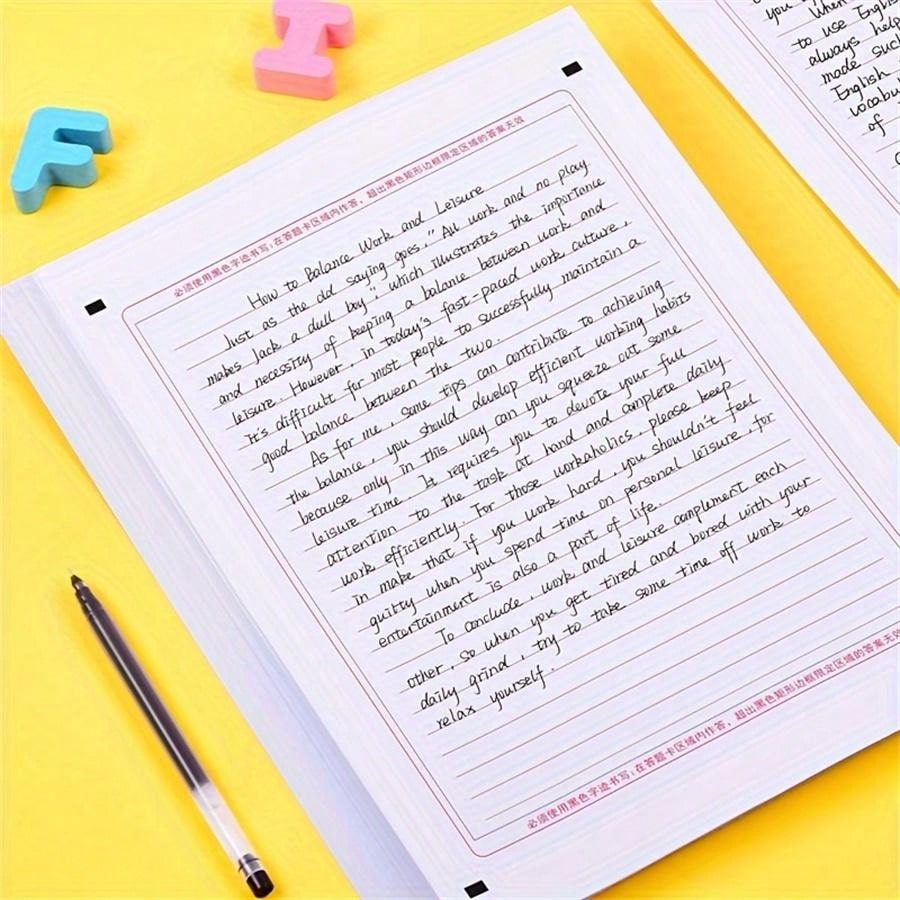 必须使用黑色字迹书写;在答题卡区域内作答,超出黑色矩形边框限定区域的答案无效
How to Balance Work and Leisure
Just as the old saying goes, "All work and no play
makes Jack a dull boy", which illustrates the importance
and necessity of keeping a balance between work and
leisure. However, in today's fast-paced work culture,
it's difficult for most people to successfully maintain a
good balance between the two.
As for me, some tips can contribute to achieving
the balance, you should develop efficient working habits
because only in this way can you squeeze out some
leisure time. It requires you to devote your full
attention to the task at hand and complete daily
work efficiently. For those workaholics, please keep
in make that if you work hard, you shouldn't feel
guilty when you spend time on personal leisure, for
entertainment is also a part of life.
To conclude, work and leisure complement each
other, so when you get tired and bored with your
daily grind, try to take some time off work to
relax yourself.
必须使用黑色字迹书写;在答题卡区域内作答,超出黑色矩形边框限定区域的答案无效
you
When
to use English
always help
made such
English
of
F
I